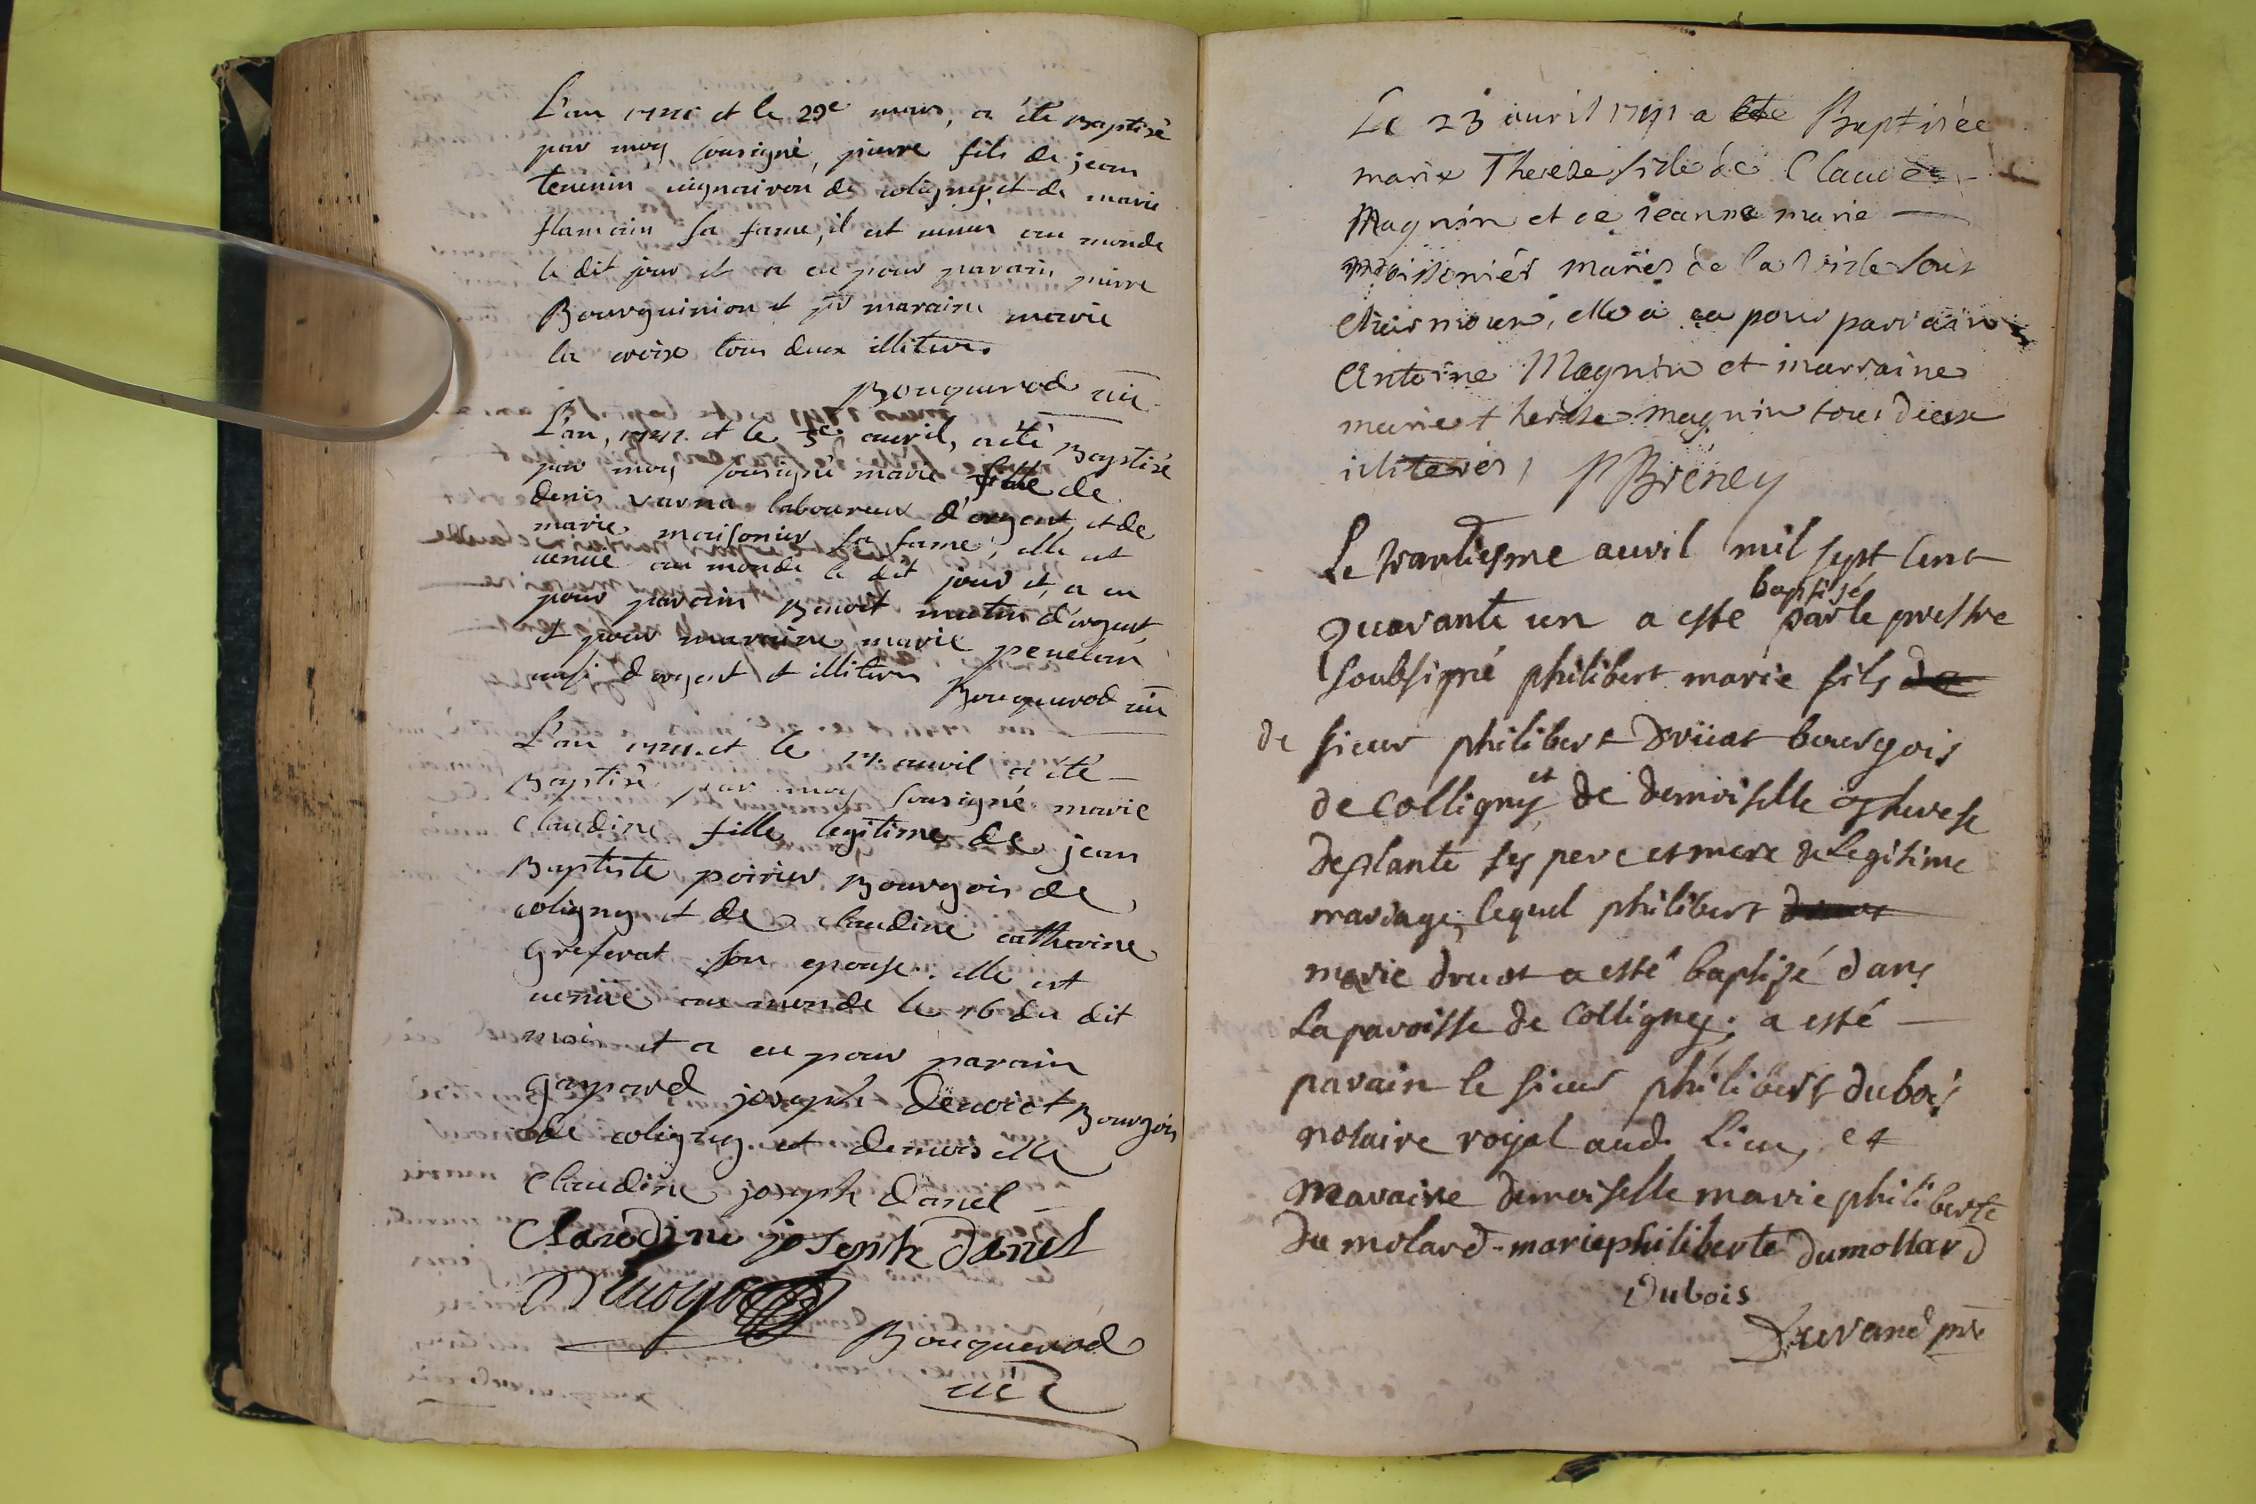 L'an 1741 et le 29e mars, a été Baptisé
par moy sousigné, pierre fils de jean
tevenin vigneron de coligny, et de marie
flamain sa fame, il est venu au monde
le dit jour et a eu pour parain pierre
Bourguinion et pr maraine marie
la croix tous deux illiteres
Bouquerod
L'an, 1741. et le 3e auril, a été Baptisé
par moy sousigné marie fille de
denis varna laboureur d'orgent, et de
marie maisonier sa fame, elle est
venüe au monde le dit jour et, a eu
pour parain Benoit mutin d'orgent,
et pour maraine marie penelan
aussi d'orgent et illiteres
Bouquerod
L'an 1741. et le 17. auril a été
Baptisé par moy sousigné marie
claudine fille legitime de jean
Baptiste poirier Bourgois de
coligny et de claudine catherine
greferat son epouse. elle est
venüe au monde le 16 du dit
mois et a eu pour parain
gaspard joseph Denoict Bourgois
de coligny et demoiselle
claudine joseph d'anel
Claudine joseph danel
Bouquerod
Le 23 auril 1741 a été Baptisée
marie Therese fille de Claude
Magnin et de jeanne marie
moissonier mariés de la ville sous
charmoux, elle a eu pour parrain
Antoine Magnin et marraine
marie therese magnin tous deux
illiteres, PBréney
Le trantiesme auril mil sept cent
quarante un a esté baptisé par le prestre
soubsigné philibert marie fils de
de sieur philibert Drüat bourgois
de colligny et de demoiselle Therese
deplante ses pere et mere de Legitime
mariage, lequel philibert druat
marie druat a esté baptisé dans
La paroisse de Colligny; a esté
parain le sieur philibert dubois
notaire royal aud. Lieu, et
Maraine demoiselle marie philiberte
du molard - marie philiberte dumollard
Dubois
Druvand ptre